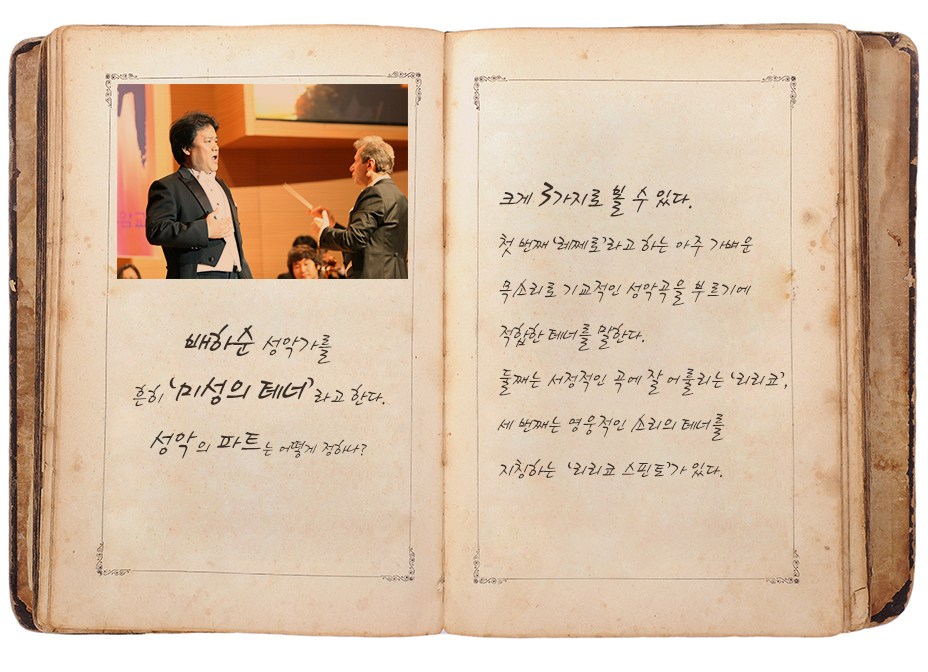 배하순 성악가를
흔히 '미성의 테너'라고 한다.
성악의 파트는 어떻게 정하나?
크게 3가지로 볼 수 있다.
첫 번째 '레쩨로'라고 하는 아주 가벼운
목소리로 기교적인 성악곡을 부르기에
적합한 테너를 말한다.
둘째는 서정적인 곡에 잘 어울리는 '리리코',
세 번째는 영웅적인 소리의 테너를
지칭하는 '리리코 스핀토'가 있다.